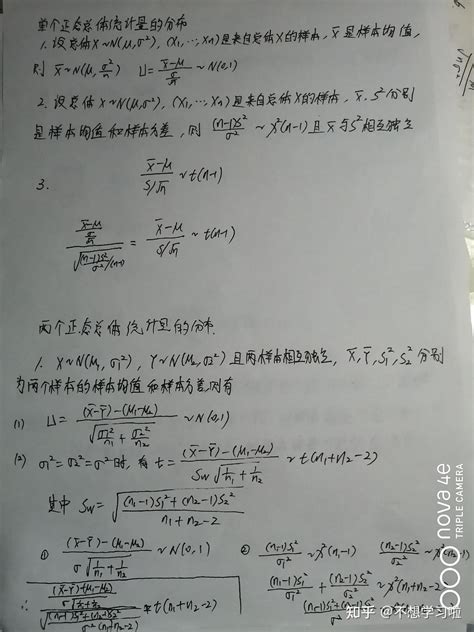 单个正态总体统计量的分布
1. 设总体X~N(μ,σ²), (X₁,…,Xₙ)是来自总体X的样本, x̄是样本均值,
则 x̄~N(μ, σ²/n) U = (x̄-μ)/(σ/√n) ~ N(0,1)
2. 设总体X~N(μ,σ²), (X₁,…,Xₙ)是来自总体X的样本, x̄, S²分别
是样本均值和样本方差, 则 (n-1)S²/σ² ~ χ²(n-1) 且 x̄与S²相互独立
3. (x̄-μ)/(S/√n) ~ t(n-1)
((x̄-μ)/(σ/√n))/√((n-1)S²/σ²/(n-1)) = (x̄-μ)/(S/√n) ~ t(n-1)
两个正态总体统计量的分布
1. X~N(μ₁,σ₁²), Y~N(μ₂,σ₂²) 且两样本相互独立, X̄,Ȳ,S₁²,S₂² 分别
为两个样本的样本均值和样本方差,则有
(1) U = ((X̄-Ȳ)-(μ₁-μ₂))/√(σ₁²/n₁+σ₂²/n₂) ~ N(0,1)
(2) σ₁²=σ₂²=σ²时, 有 t = ((X̄-Ȳ)-(μ₁-μ₂))/(Sw√(1/n₁+1/n₂)) ~ t(n₁+n₂-2)
其中 Sw = √(((n₁-1)S₁²+(n₂-1)S₂²)/(n₁+n₂-2))
① ((X̄-Ȳ)-(μ₁-μ₂))/(σ√(1/n₁+1/n₂)) ~ N(0,1) ② (n₁-1)S₁²/σ² ~ χ²(n₁-1) (n₂-1)S₂²/σ² ~ χ²(n₂-1)
(n₁-1)S₁²/σ² + (n₂-1)S₂²/σ² ~ χ²(n₁+n₂-2)
t(n₁+n₂-2)
nova 4e
TRIPLE CAMERA
知乎 @不想学习啦